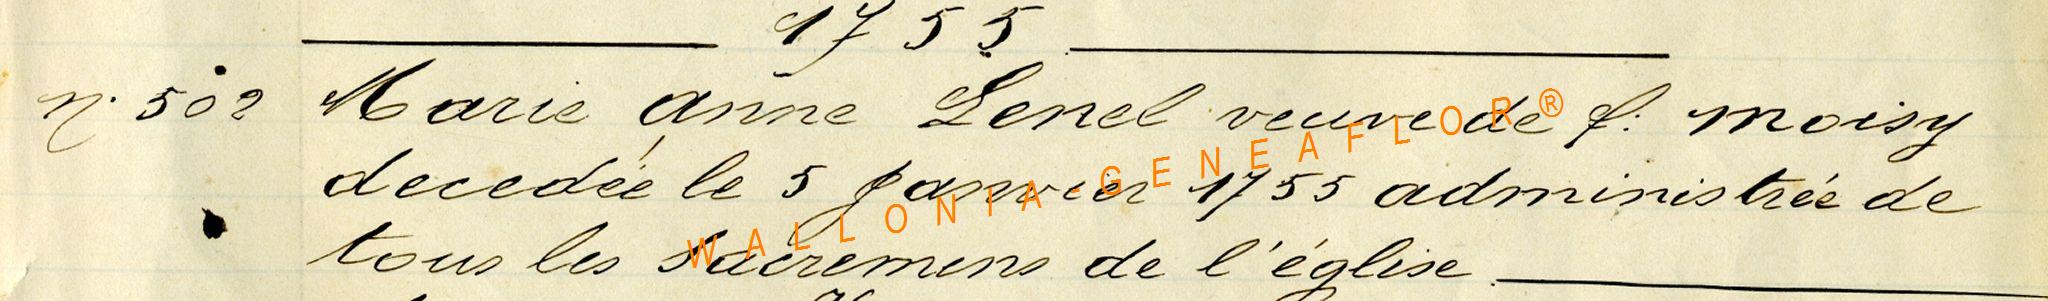 1755
n. 502 Marie anne Lenel veuve de f. moisy
decedée le 5 janvier 1755 administrée de
tous les sacremens de l'église
WALLONIA-GENEAFLOR®